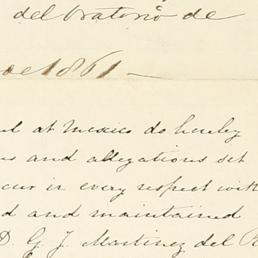 del Oratorio de
de 1861 —
at Mexico do hereby
and allegations set
in every respect with
and maintained
D. G. J. Martinez del